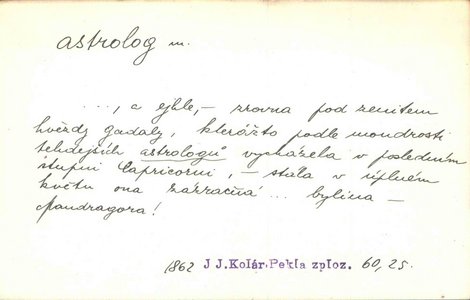 astrolog m.
..., a ejhle, – zrovna pod zenitem
hvězdy Gadaly, kterážto podle moudrosti
tehdejších astrologů vycházela v posledním
stupni Capricorni, – stála v úplném
květu ona zázračná ... bylina –
Mandragora!
1862 J J.Kolár.Pekla zploz. 60, 25.